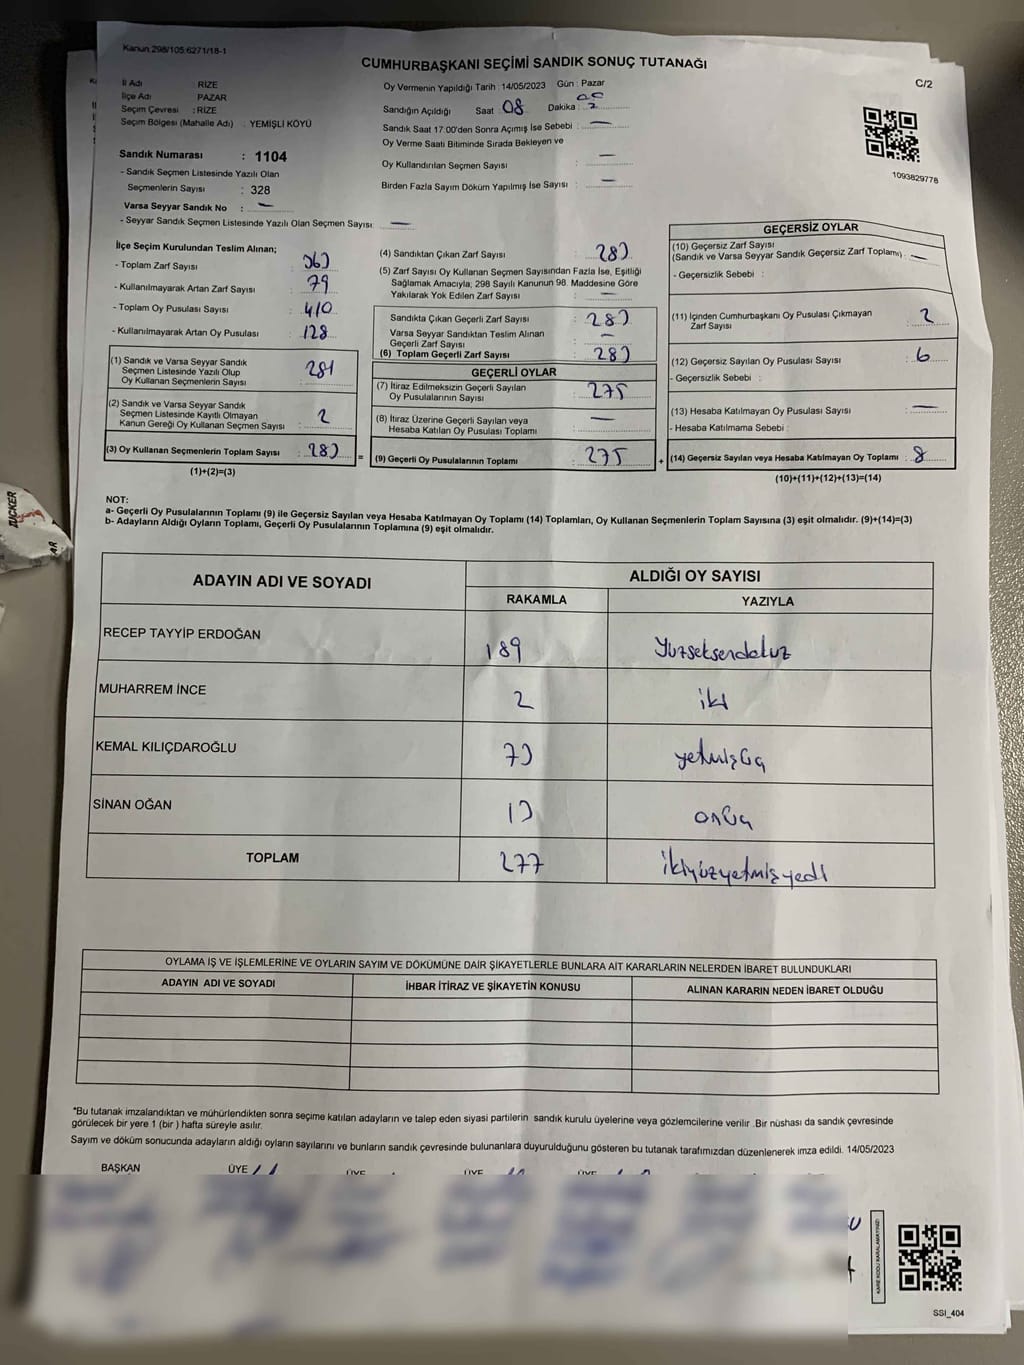 Kanun 298/105:6271/18-1
CUMHURBAŞKANI SEÇİMİ SANDIK SONUÇ TUTANAĞI
C/2
İl Adı RİZE
İlçe Adı PAZAR
Seçim Çevresi : RİZE
Seçim Bölgesi (Mahalle Adı) : YEMİŞLİ KÖYÜ
Sandık Numarası : 1104
- Sandık Seçmen Listesinde Yazılı Olan
Seçmenlerin Sayısı : 328
Varsa Seyyar Sandık No : —
- Seyyar Sandık Seçmen Listesinde Yazılı Olan Seçmen Sayısı: —
Oy Vermenin Yapıldığı Tarih : 14/05/2023 Gün : Pazar
Sandığın Açıldığı Saat : 08 Dakika :
Sandık Saat 17:00'den Sonra Açımış İse Sebebi : —
Oy Verme Saati Bitiminde Sırada Bekleyen ve
Oy Kullandırılan Seçmen Sayısı : —
Birden Fazla Sayım Döküm Yapılmış İse Sayısı : —
1093829778
İlçe Seçim Kurulundan Teslim Alınan;
- Toplam Zarf Sayısı : 363
- Kullanılmayarak Artan Zarf Sayısı : 79
- Toplam Oy Pusulası Sayısı : 410
- Kullanılmayarak Artan Oy Pusulası : 128
(1) Sandık ve Varsa Seyyar Sandık
Seçmen Listesinde Yazılı Olup
Oy Kullanan Seçmenlerin Sayısı : 281
(2) Sandık ve Varsa Seyyar Sandık
Seçmen Listesinde Kayıtlı Olmayan
Kanun Gereği Oy Kullanan Seçmen Sayısı : 2
(3) Oy Kullanan Seçmenlerin Toplam Sayısı : 283 =
(1)+(2)=(3)
(4) Sandıktan Çıkan Zarf Sayısı : 283
(5) Zarf Sayısı Oy Kullanan Seçmen Sayısından Fazla İse, Eşitliği
Sağlamak Amacıyla; 298 Sayılı Kanunun 98. Maddesine Göre
Yakılarak Yok Edilen Zarf Sayısı : —
Sandıkta Çıkan Geçerli Zarf Sayısı : 283
Varsa Seyyar Sandıktan Teslim Alınan
Geçerli Zarf Sayısı : —
(6) Toplam Geçerli Zarf Sayısı : 283
GEÇERLİ OYLAR
(7) İtiraz Edilmeksizin Geçerli Sayılan
Oy Pusulalarının Sayısı : 275
(8) İtiraz Üzerine Geçerli Sayılan veya
Hesaba Katılan Oy Pusulası Toplamı : —
(9) Geçerli Oy Pusulalarının Toplamı : 275 +
GEÇERSİZ OYLAR
(10) Geçersiz Zarf Sayısı
(Sandık ve Varsa Seyyar Sandık Geçersiz Zarf Toplamı) : —
- Geçersizlik Sebebi :
(11) İçinden Cumhurbaşkanı Oy Pusulası Çıkmayan
Zarf Sayısı : 2
(12) Geçersiz Sayılan Oy Pusulası Sayısı : 6
- Geçersizlik Sebebi :
(13) Hesaba Katılmayan Oy Pusulası Sayısı : —
- Hesaba Katılmama Sebebi :
(14) Geçersiz Sayılan veya Hesaba Katılmayan Oy Toplamı : 8
(10)+(11)+(12)+(13)=(14)
NOT:
a- Geçerli Oy Pusulalarının Toplamı (9) ile Geçersiz Sayılan veya Hesaba Katılmayan Oy Toplamı (14) Toplamları, Oy Kullanan Seçmenlerin Toplam Sayısına (3) eşit olmalıdır. (9)+(14)=(3)
b- Adayların Aldığı Oyların Toplamı, Geçerli Oy Pusulalarının Toplamına (9) eşit olmalıdır.
ADAYIN ADI VE SOYADI
ALDIĞI OY SAYISI
RAKAMLA YAZIYLA
RECEP TAYYİP ERDOĞAN 189 Yüzseksendokuz
MUHARREM İNCE 2 iki
KEMAL KILIÇDAROĞLU 73 yetmişüç
SİNAN OĞAN 13 onüç
TOPLAM 277 ikiyüzyetmişyedi
OYLAMA İŞ VE İŞLEMLERİNE VE OYLARIN SAYIM VE DÖKÜMÜNE DAİR ŞİKAYETLERLE BUNLARA AİT KARARLARIN NELERDEN İBARET BULUNDUKLARI
ADAYIN ADI VE SOYADI İHBAR İTİRAZ VE ŞİKAYETİN KONUSU ALINAN KARARIN NEDEN İBARET OLDUĞU
*Bu tutanak imzalandıktan ve mühürlendikten sonra seçime katılan adayların ve talep eden siyasi partilerin sandık kurulu üyelerine veya gözlemcilerine verilir .Bir nüshası da sandık çevresinde
görülecek bir yere 1 (bir ) hafta süreyle asılır.
Sayım ve döküm sonucunda adayların aldığı oyların sayılarını ve bunların sandık çevresinde bulunanlara duyurulduğunu gösteren bu tutanak tarafımızdan düzenlenerek imza edildi. 14/05/2023
BAŞKAN ÜYE ÜYE ÜYE ÜYE
KARE KODU KARALAMAYINIZ!
SSİ_404
ZUCKER